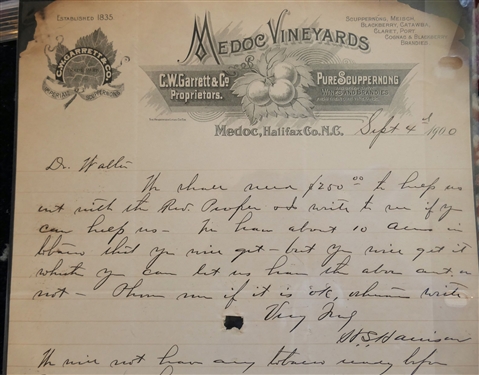 ESTABLISHED 1835
C.W. GARRETT & CO.
MEDOC VINEYARDS
SCUPPERNONG, MEISCH,
BLACKBERRY, CATAWBA,
CLARET, PORT
COGNAC & BLACKBERRY
BRANDIES.
C.W. GARRETT & CO
PROPRIETORS.
PURE SCUPPERNONG
WINES AND BRANDIES
Medoc, Halifax Co. N.C.
Sept 4th 1900
Dr. Walter
We shall need $250 00 to help us
out with the Rev. People & write to see if you
can help us - We have about 10 acres in
tobacco that you will get - but you will get it
whether you can let us have the above amt. or
not - Phone me if it is ok, otherwise write
Very Truly
W.S. Harrison
We will not have any tobacco ready before